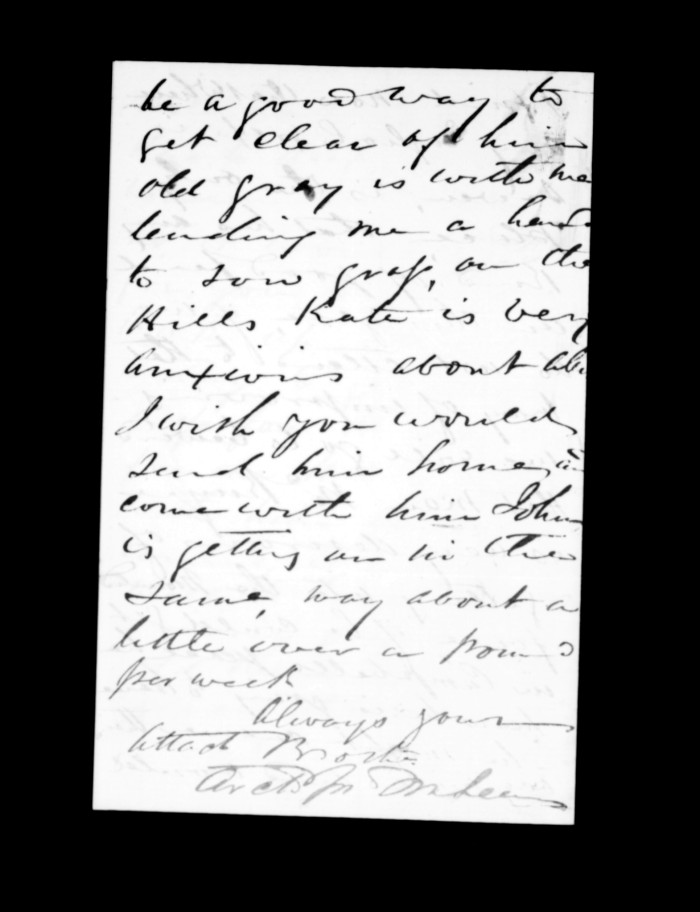 be a good way to
get clear of him
old gray is with me
lending me a hand
to sow grass, on the
Hills Kate is very
anxious about
I wish you would
send him home,
come with him John
is getting on in the
same, way about a
little over a pound
per week
Always yours
Attach Brother
Archd McLean